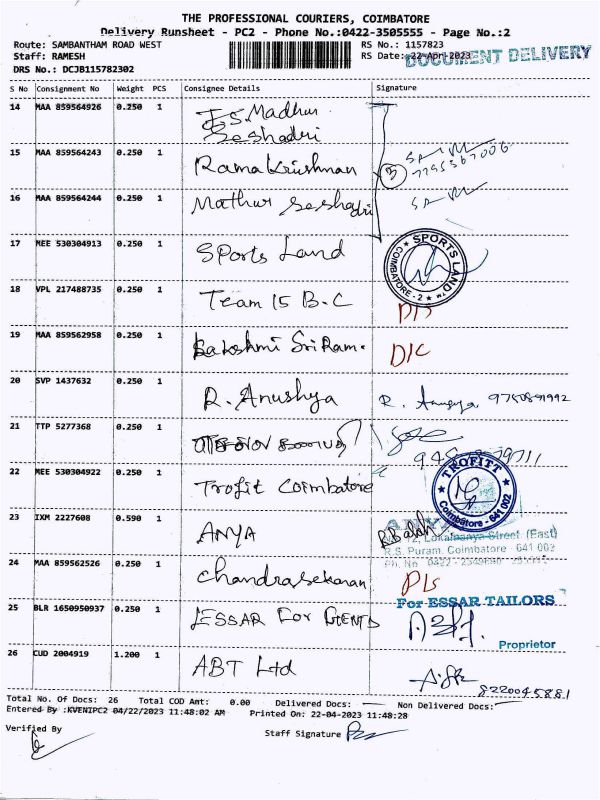 THE PROFESSIONAL COURIERS, COIMBATORE
Delivery Runsheet - PC2 - Phone No.:0422-3505555 - Page No.:2
Route: SAMBANTHAM ROAD WEST
RS No.: 1157823
Staff: RAMESH
RS Date: 22-Apr-2023
DOCUMENT DELIVERY
DRS No.: DCJB115782302
S No Consignment No Weight PCS Consignee Details Signature
14 MAA 859564926 0.250 1 S. Madhur
Seshadri
15 MAA 859564243 0.250 1 Rama Krishnan
3
16 MAA 859564244 0.250 1 Mathur Seshadri
17 MEE 530304913 0.250 1 Sports Land
SPORTS LAND COIMBATORE - 2
18 VPL 217488735 0.250 1 Team 15 B.C
19 MAA 859562958 0.250 1 Lakshmi Sri Ram. D/C
20 SVP 1437632 0.250 1 R. Anushya
21 TTP 5277368 0.250 1
22 MEE 530304922 0.250 1 Trofit Coimbatore
TROFITT Coimbatore - 641 002
23 IXM 2227608 0.590 1 ANYA
R.S. Puram, Coimbatore - 641 002
24 MAA 859562526 0.250 1 Chandrasekaran
For ESSAR TAILORS
25 BLR 1650950937 0.250 1 ESSAR For GENTS
Proprietor
26 CUD 2004919 1.200 1 ABT Ltd
8220045881
Total No. Of Docs: 26 Total COD Amt: 0.00 Delivered Docs: Non Delivered Docs:
Entered By :KVENIPC2 04/22/2023 11:48:02 AM Printed On: 22-04-2023 11:48:28
Verified By
Staff Signature